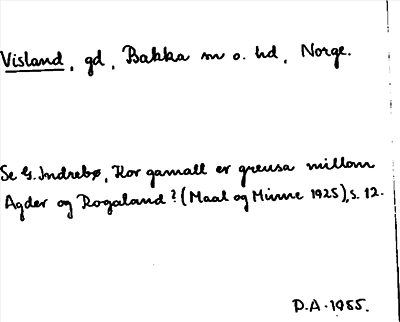 Visland, gd, Bakka sn o. hd, Norge.
Se G. Indrebø, Kor gamall er grensa millom
Agder og Rogaland? (Maal og Minne 1925), s. 12.
D.A. 1955.